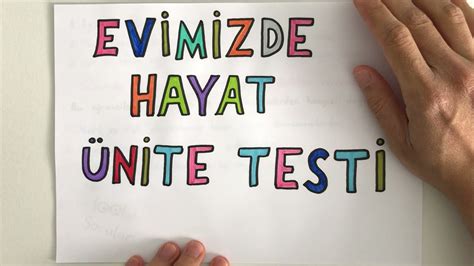 EViMiZDE
HAYAT
ÜNiTE TESTi